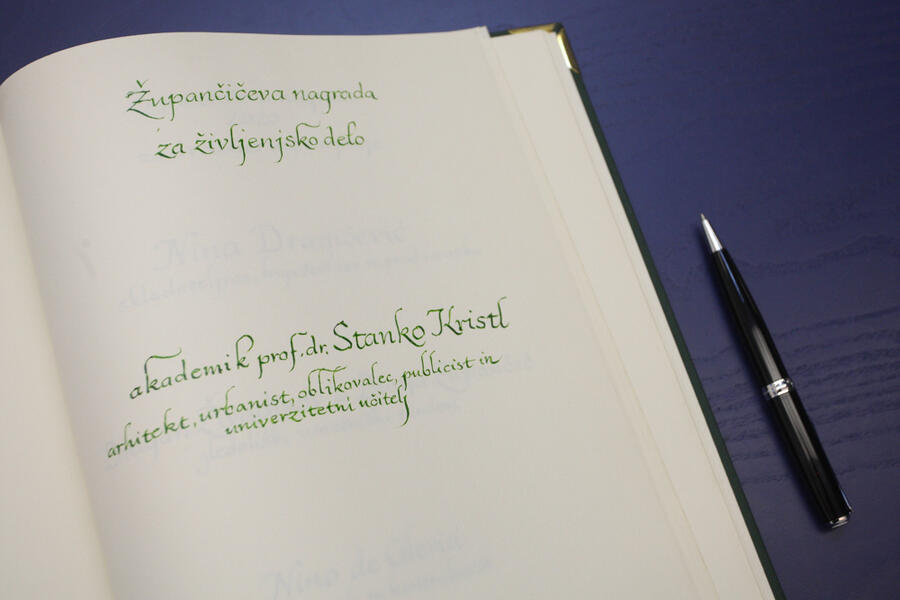 Župančičeva nagrada
za življenjsko delo
akademik prof. dr. Stanko Kristl
arhitekt, urbanist, oblikovalec, publicist in
univerzitetni učitelj